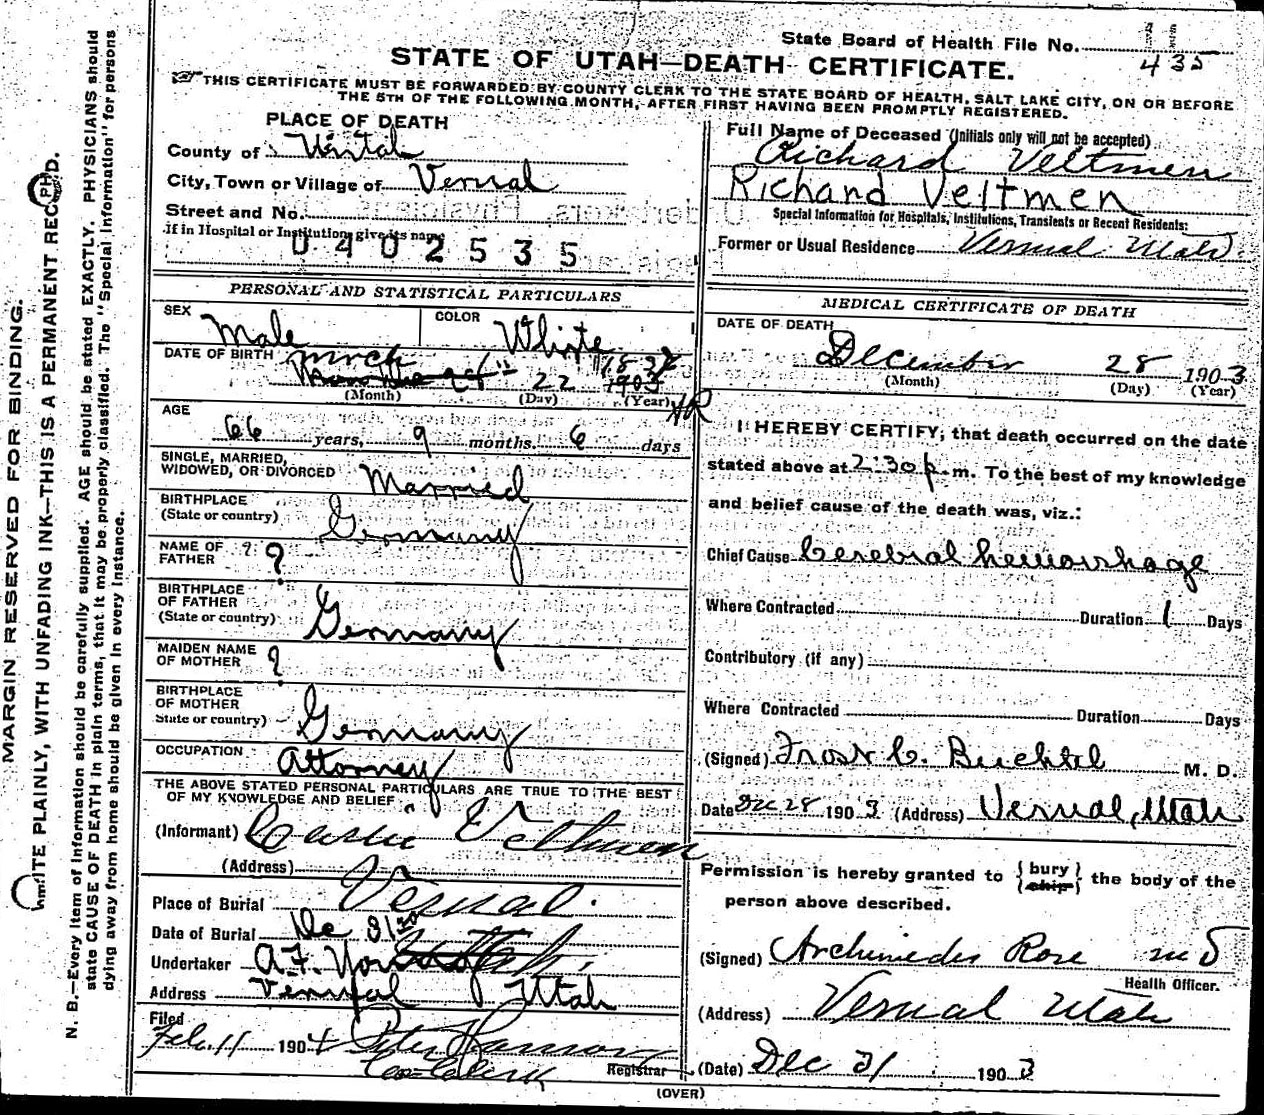 State Board of Health File No. 435
STATE OF UTAH—DEATH CERTIFICATE.
THIS CERTIFICATE MUST BE FORWARDED BY COUNTY CLERK TO THE STATE BOARD OF HEALTH, SALT LAKE CITY, ON OR BEFORE
THE 5TH OF THE FOLLOWING MONTH, AFTER FIRST HAVING BEEN PROMPTLY REGISTERED.
PLACE OF DEATH
County of
City, Town or Village of Vernal
Street and No.
If in Hospital or Institution, give its name
0402535
PERSONAL AND STATISTICAL PARTICULARS
SEX Male
COLOR White
DATE OF BIRTH 22
(Month) (Day) (Year)
AGE
66 years, 9 months 6 days
SINGLE, MARRIED,
WIDOWED, OR DIVORCED Married
BIRTHPLACE
(State or country) Germany
NAME OF
FATHER ?
BIRTHPLACE
OF FATHER
(State or country) Germany
MAIDEN NAME
OF MOTHER ?
BIRTHPLACE
OF MOTHER
State or country) Germany
OCCUPATION Attorney
THE ABOVE STATED PERSONAL PARTICULARS ARE TRUE TO THE BEST
OF MY KNOWLEDGE AND BELIEF
(Informant) Veltmen
(Address)
Place of Burial Vernal
Date of Burial Dec 31
Undertaker A.F.
Address Vernal Utah
Filed
Feb. 11 1904 Peter Hanson
Co. Clerk Registrar
Full Name of Deceased (Initials only will not be accepted)
Richard Veltmen
Richard Veltmen
Special Information for Hospitals, Institutions, Transients or Recent Residents:
Former or Usual Residence Vernal Utah
MEDICAL CERTIFICATE OF DEATH
DATE OF DEATH
December 28 1903
(Month) (Day) (Year)
I HEREBY CERTIFY, that death occurred on the date
stated above at 2:30 p.m. To the best of my knowledge
and belief cause of the death was, viz.:
Chief Cause Cerebral hemorrhage
Where Contracted Duration 1 Days
Contributory (if any)
Where Contracted Duration Days
(Signed) C. M. D.
Date Dec 28 1903 (Address) Vernal, Utah
Permission is hereby granted to {bury} {ship} the body of the
person above described.
(Signed) Archimedes Rose M D
Health Officer.
(Address) Vernal Utah
(Date) Dec 31 1903
(OVER)
MARGIN RESERVED FOR BINDING.
WRITE PLAINLY, WITH UNFADING INK—THIS IS A PERMANENT RECORD.
N. B.—Every item of information should be carefully supplied. AGE should be stated EXACTLY. PHYSICIANS should
state CAUSE OF DEATH in plain terms, that it may be properly classified. The "Special Information" for persons
dying away from home should be given in every instance.